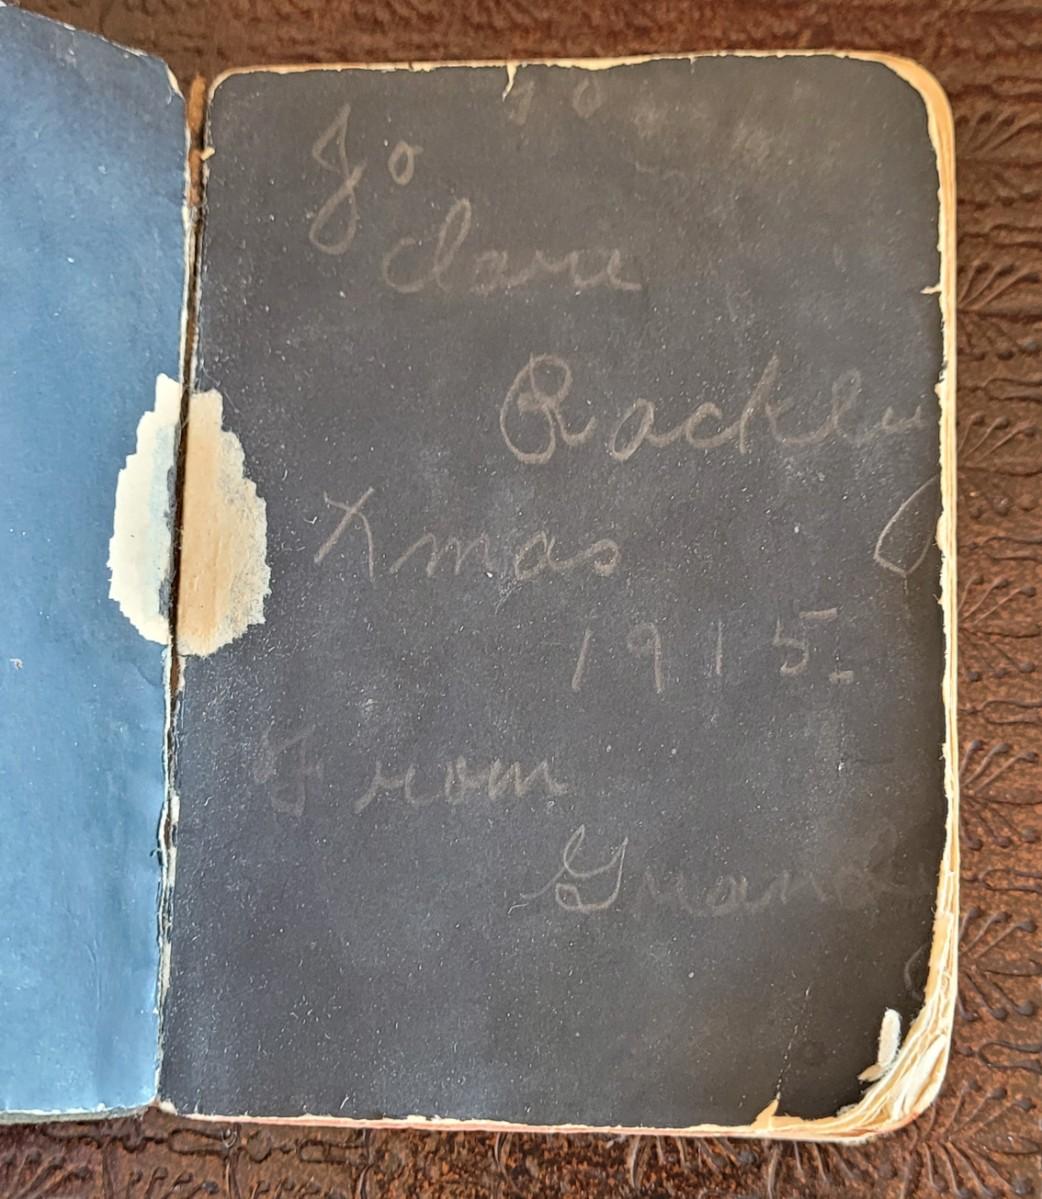 To
Clare
Rackley
Xmas
1915.
From
Grand